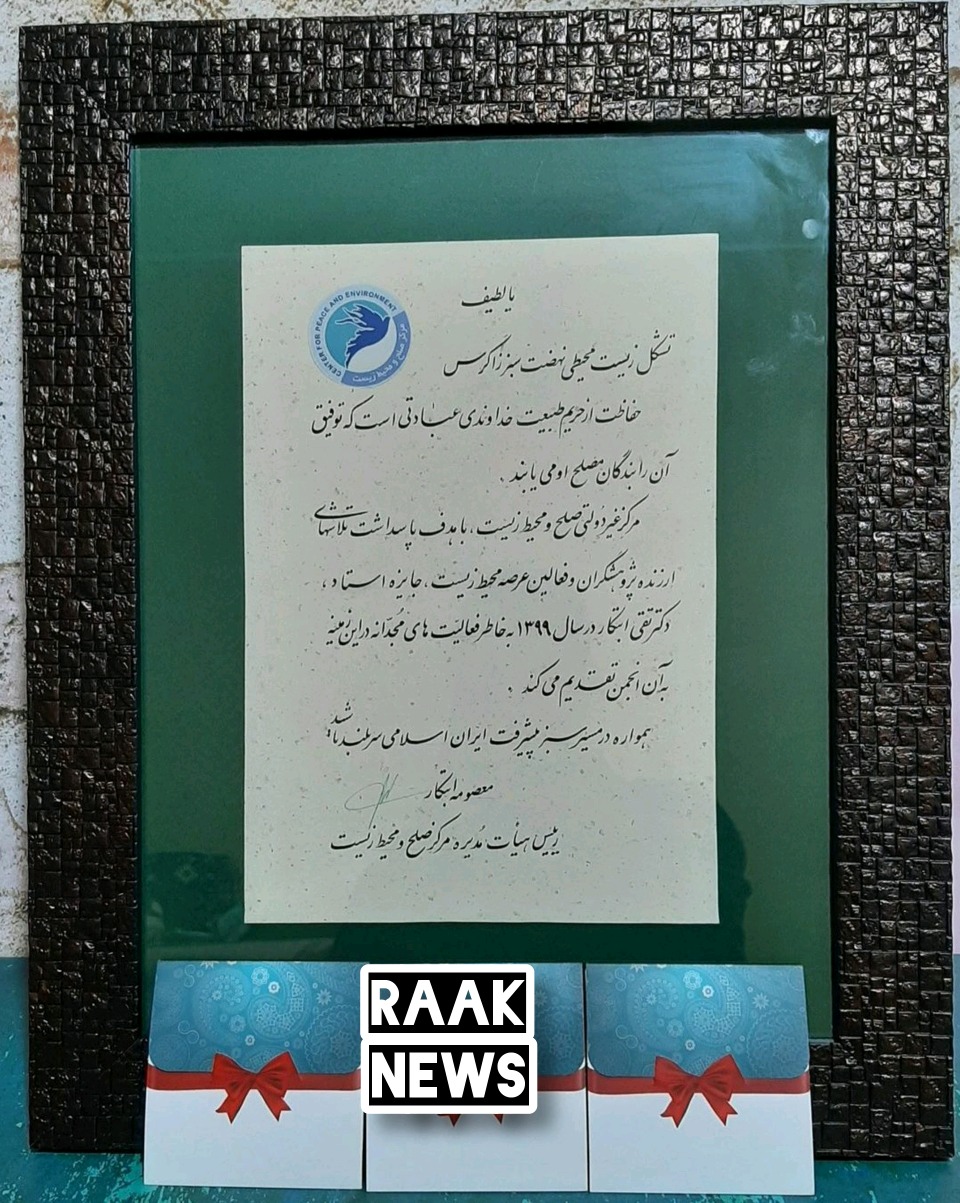 یا لطیف
CENTER FOR PEACE AND ENVIRONMENT
مرکز صلح و محیط زیست
تشکل زیست محیطی نهضت سبز زاگرس
حفاظت از حریم طبیعت خداوندی عبادتی است که توفیق
آن را بندگان مصلح او می یابند.
مرکز غیر دولتی صلح و محیط زیست، با هدف پاسداشت تلاشهای
ارزنده پژوهشگران و فعالین عرصه محیط زیست، جایزه استاد،
دکتر تقی ابتکار در سال ۱۳۹۹ به خاطر فعالیت های مُجدّانه در این زمینه
به آن انجمن تقدیم می کند.
همواره در مسیر سبز پیشرفت ایران اسلامی سربلند باشید
معصومه ابتکار
رییس هیأت مُدیره مرکز صلح و محیط زیست
RAAK
NEWS